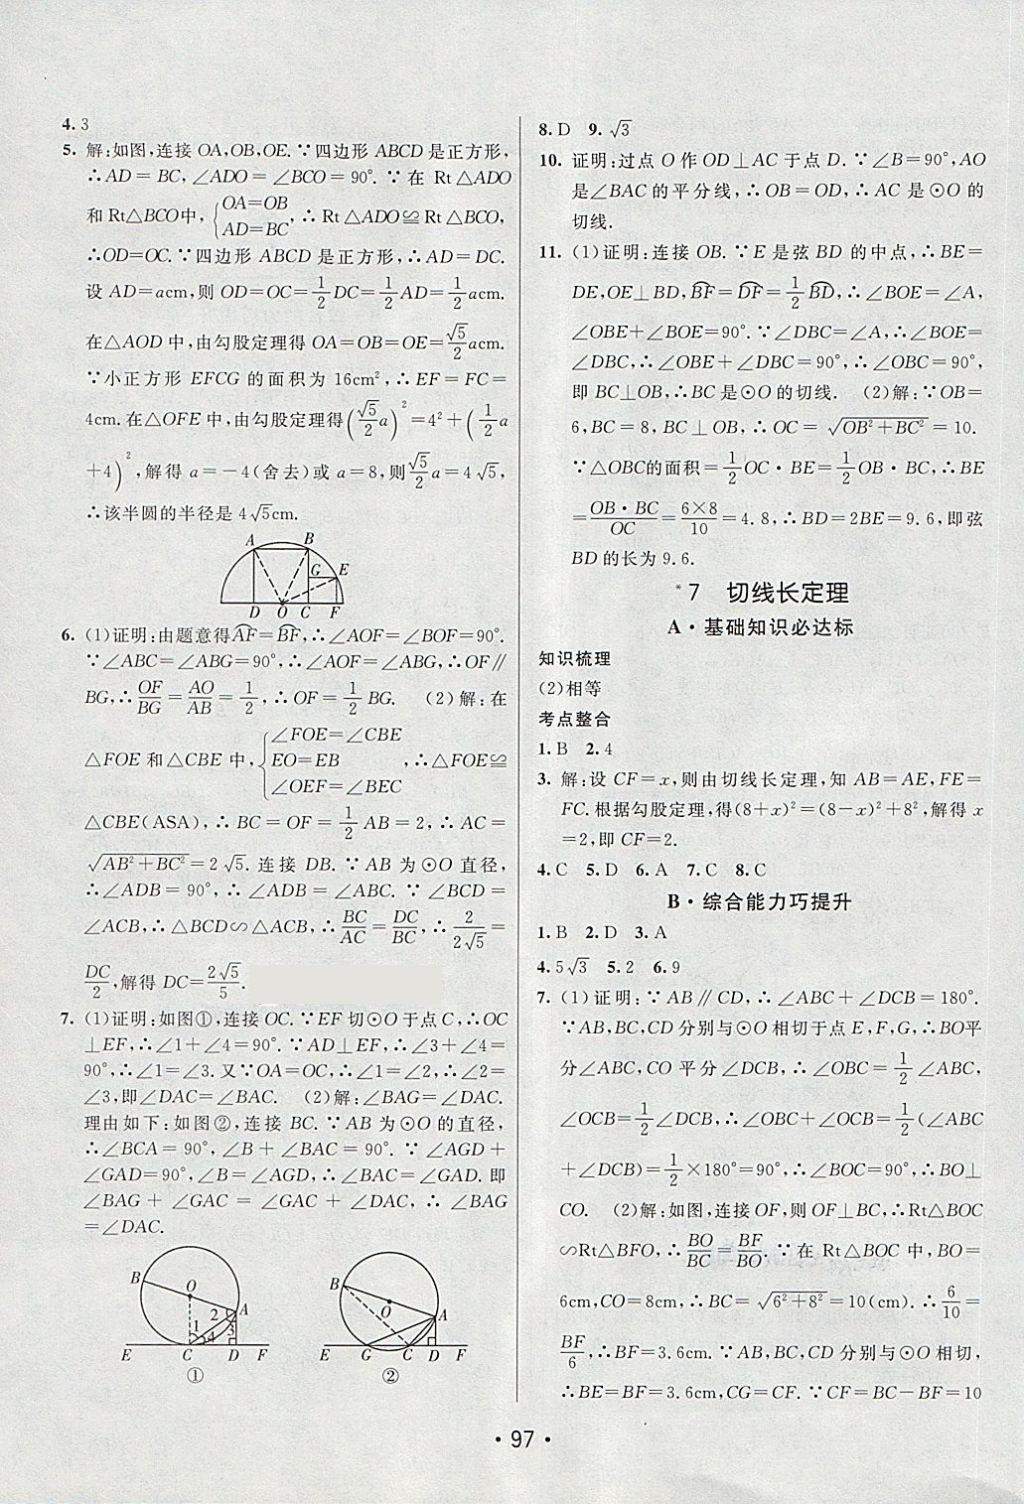 4. 3
5. 解:如图,连接 OA,OB,OE.∵四边形 ABCD 是正方形,
∴AD=BC,∠ADO=∠BCO=90°.∵在 Rt△ADO
和 Rt△BCO中,{OA=OB AD=BC,∴Rt△ADO≌Rt△BCO,
∴OD=OC.∵四边形 ABCD 是正方形,∴AD=DC.
设 AD=acm,则 OD=OC=1/2DC=1/2AD=1/2acm.
在△AOD 中,由勾股定理得 OA=OB=OE=√5/2acm.
∵小正方形 EFCG 的面积为 16cm²,∴EF=FC=
4cm.在△OFE 中,由勾股定理得(√5/2a)²=4²+(1/2a
+4)²,解得 a=-4(舍去)或 a=8,则√5/2a=4√5,
∴该半圆的半径是 4√5cm.
A B G E D O C F
6. (1)证明:由题意得A͡F=B͡F,∴∠AOF=∠BOF=90°.
∵∠ABC=∠ABG=90°,∴∠AOF=∠ABG,∴OF∥
BG,∴OF/BG=AO/AB=1/2,∴OF=1/2BG. (2)解:在
△FOE 和△CBE 中,{∠FOE=∠CBE EO=EB ∠OEF=∠BEC,∴△FOE≌
△CBE(ASA),∴BC=OF=1/2AB=2,∴AC=
√(AB²+BC²)=2√5.连接 DB.∵AB 为⊙O 直径,
∴∠ADB=90°,∴∠ADB=∠ABC.∵∠BCD=
∠ACB,∴△BCD∽△ACB,∴BC/AC=DC/BC,∴2/2√5=
DC/2,解得 DC=2√5/5.
7. (1)证明:如图①,连接 OC.∵EF 切⊙O 于点 C,∴OC
⊥EF,∴∠1+∠4=90°.∵AD⊥EF,∴∠3+∠4=
90°,∴∠1=∠3.又∵OA=OC,∴∠1=∠2,∴∠2=
∠3,即∠DAC=∠BAC. (2)解:∠BAG=∠DAC.
理由如下:如图②,连接 BC.∵AB 为⊙O 的直径,
∴∠BCA=90°,∠B+∠BAC=90°.∵∠AGD+
∠GAD=90°,∠B=∠AGD,∴∠BAC=∠GAD.即
∠BAG+∠GAC=∠GAC+∠DAC,∴∠BAG
=∠DAC.
B O A 1 2 3 4 E C D F
①
B O A E G C D F
②
8. D 9. √3
10. 证明:过点 O 作 OD⊥AC 于点 D.∵∠B=90°,AO
是∠BAC 的平分线,∴OB=OD,∴AC 是⊙O 的
切线.
11. (1)证明:连接 OB.∵E 是弦 BD 的中点,∴BE=
DE,OE⊥BD,B͡F=D͡F=1/2B͡D,∴∠BOE=∠A,
∠OBE+∠BOE=90°.∵∠DBC=∠A,∴∠BOE=
∠DBC,∴∠OBE+∠DBC=90°,∴∠OBC=90°,
即 BC⊥OB,∴BC 是⊙O 的切线. (2)解:∵OB=
6,BC=8,BC⊥OB,∴OC=√(OB²+BC²)=10.
∵△OBC的面积=1/2OC·BE=1/2OB·BC,∴BE
=OB·BC/OC=6×8/10=4.8,∴BD=2BE=9.6,即弦
BD 的长为 9.6.
*7 切线长定理
A·基础知识必达标
知识梳理
(2)相等
考点整合
1. B 2. 4
3. 解:设 CF=x,则由切线长定理,知 AB=AE,FE=
FC.根据勾股定理,得(8+x)²=(8-x)²+8²,解得 x
=2,即 CF=2.
4. C 5. D 6. A 7. C 8. C
B·综合能力巧提升
1. B 2. D 3. A
4. 5√3 5. 2 6. 9
7. (1)证明:∵AB∥CD,∴∠ABC+∠DCB=180°.
∵AB,BC,CD 分别与⊙O 相切于点 E,F,G,∴BO平
分∠ABC,CO 平分∠DCB,∴∠OBC=1/2∠ABC,
∠OCB=1/2∠DCB,∴∠OBC+∠OCB=1/2(∠ABC
+∠DCB)=1/2×180°=90°,∴∠BOC=90°,∴BO⊥
CO. (2)解:如图,连接 OF,则 OF⊥BC,∴Rt△BOC
∽Rt△BFO,∴BO/BC=BF/BO.∵在 Rt△BOC 中,BO=
6cm,CO=8cm,∴BC=√(6²+8²)=10(cm).∴6/10=
BF/6,∴BF=3.6cm.∵AB,BC,CD 分别与⊙O 相切,
∴BE=BF=3.6cm,CG=CF.∵CF=BC-BF=10
·97·